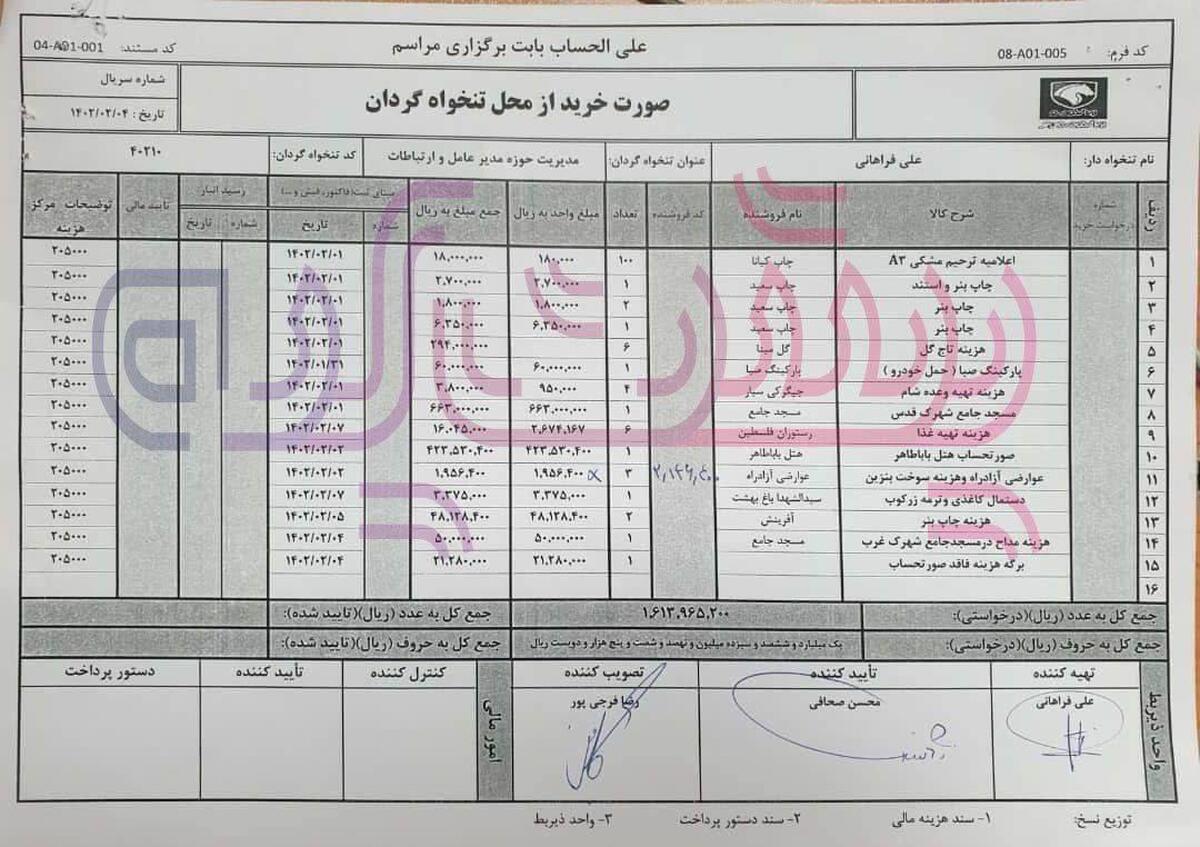 کد فرم: 08-A01-005 علی الحساب بابت برگزاری مراسم کد مستند: 04-A01-001
صورت خرید از محل تنخواه گردان
شماره سریال
تاریخ : ۱۴۰۲/۰۲/۰۴
نام تنخواه دار: علی فراهانی عنوان تنخواه گردان: مدیریت حوزه مدیر عامل و ارتباطات کد تنخواه گردان: ۴۰۲۱۰
ردیف شماره درخواست خرید شرح کالا نام فروشنده کد فروشنده تعداد مبلغ واحد به ریال جمع مبلغ به ریال مبنای ثبت(فاکتور، فیش و ...) رسید انبار تایید مالی توضیحات مرکز هزینه
شماره تاریخ شماره تاریخ
۱ اعلامیه ترحیم مشکی A۳ چاپ کیانا ۱۰۰ ۱۸۰,۰۰۰ ۱۸,۰۰۰,۰۰۰ ۱۴۰۲/۰۲/۰۱ ۲۰۵۰۰۰
۲ چاپ بنر و استند چاپ سعید ۱ ۲,۷۰۰,۰۰۰ ۲,۷۰۰,۰۰۰ ۱۴۰۲/۰۲/۰۱ ۲۰۵۰۰۰
۳ چاپ بنر چاپ سعید ۲ ۱,۸۰۰,۰۰۰ ۱,۸۰۰,۰۰۰ ۱۴۰۲/۰۲/۰۱ ۲۰۵۰۰۰
۴ چاپ بنر چاپ سعید ۱ ۶,۳۵۰,۰۰۰ ۶,۳۵۰,۰۰۰ ۱۴۰۲/۰۲/۰۱ ۲۰۵۰۰۰
۵ هزینه تاج گل گل مینا ۶ ۲۹۴,۰۰۰,۰۰۰ ۱۴۰۲/۰۲/۰۱ ۲۰۵۰۰۰
۶ پارکینگ صبا ( حمل خودرو ) پارکینگ صبا ۱ ۶۰,۰۰۰,۰۰۰ ۶۰,۰۰۰,۰۰۰ ۱۴۰۲/۰۱/۳۱ ۲۰۵۰۰۰
۷ هزینه تهیه وعده شام جیگرکی سیار ۴ ۹۵۰,۰۰۰ ۳,۸۰۰,۰۰۰ ۱۴۰۲/۰۲/۰۱ ۲۰۵۰۰۰
۸ مسجد جامع شهرک قدس مسجد جامع ۱ ۶۶۳,۰۰۰,۰۰۰ ۶۶۳,۰۰۰,۰۰۰ ۱۴۰۲/۰۲/۰۱ ۲۰۵۰۰۰
۹ هزینه تهیه غذا رستوران فلسطین ۶ ۲,۶۷۴,۱۶۷ ۱۶,۰۴۵,۰۰۰ ۱۴۰۲/۰۲/۰۷ ۲۰۵۰۰۰
۱۰ صورتحساب هتل باباطاهر هتل باباطاهر ۱ ۴۲۳,۵۳۰,۴۰۰ ۴۲۳,۵۳۰,۴۰۰ ۱۴۰۲/۰۲/۰۲ ۲۰۵۰۰۰
۱۱ عوارضی آزادراه وهزینه سوخت بنزین عوارضی آزادراه ۳ ۱,۹۵۶,۴۰۰ ۱,۹۵۶,۴۰۰ ۱۴۰۲/۰۲/۰۲ ۲۰۵۰۰۰
۱۲ دستمال کاغذی وترمه زرکوب سیدالشهدا باغ بهشت ۱ ۳,۳۷۵,۰۰۰ ۳,۳۷۵,۰۰۰ ۱۴۰۲/۰۲/۰۷ ۲۰۵۰۰۰
۱۳ هزینه چاپ بنر آفرینش ۲ ۴۸,۱۲۸,۴۰۰ ۴۸,۱۲۸,۴۰۰ ۱۴۰۲/۰۲/۰۵ ۲۰۵۰۰۰
۱۴ هزینه مداح درمسجدجامع شهرک غرب مسجد جامع ۱ ۵۰,۰۰۰,۰۰۰ ۵۰,۰۰۰,۰۰۰ ۱۴۰۲/۰۲/۰۴ ۲۰۵۰۰۰
۱۵ برگه هزینه فاقد صورتحساب ۱ ۲۱,۲۸۰,۰۰۰ ۲۱,۲۸۰,۰۰۰ ۱۴۰۲/۰۲/۰۴ ۲۰۵۰۰۰
۱۶
جمع کل به عدد (ریال)(درخواستی): ۱,۶۱۳,۹۶۵,۲۰۰ جمع کل به عدد (ریال)(تایید شده):
جمع کل به حروف (ریال)(درخواستی): یک میلیارد و ششصد و سیزده میلیون و نهصد و شصت و پنج هزار و دویست ریال جمع کل به حروف (ریال)(تایید شده):
واحد ذیربط تهیه کننده تأیید کننده تصویب کننده امور مالی کنترل کننده تأیید کننده دستور پرداخت
علی فراهانی محسن صحافی رضا فرجی پور
توزیع نسخ: ۱- سند هزینه مالی ۲- سند دستور پرداخت ۳- واحد ذیربط